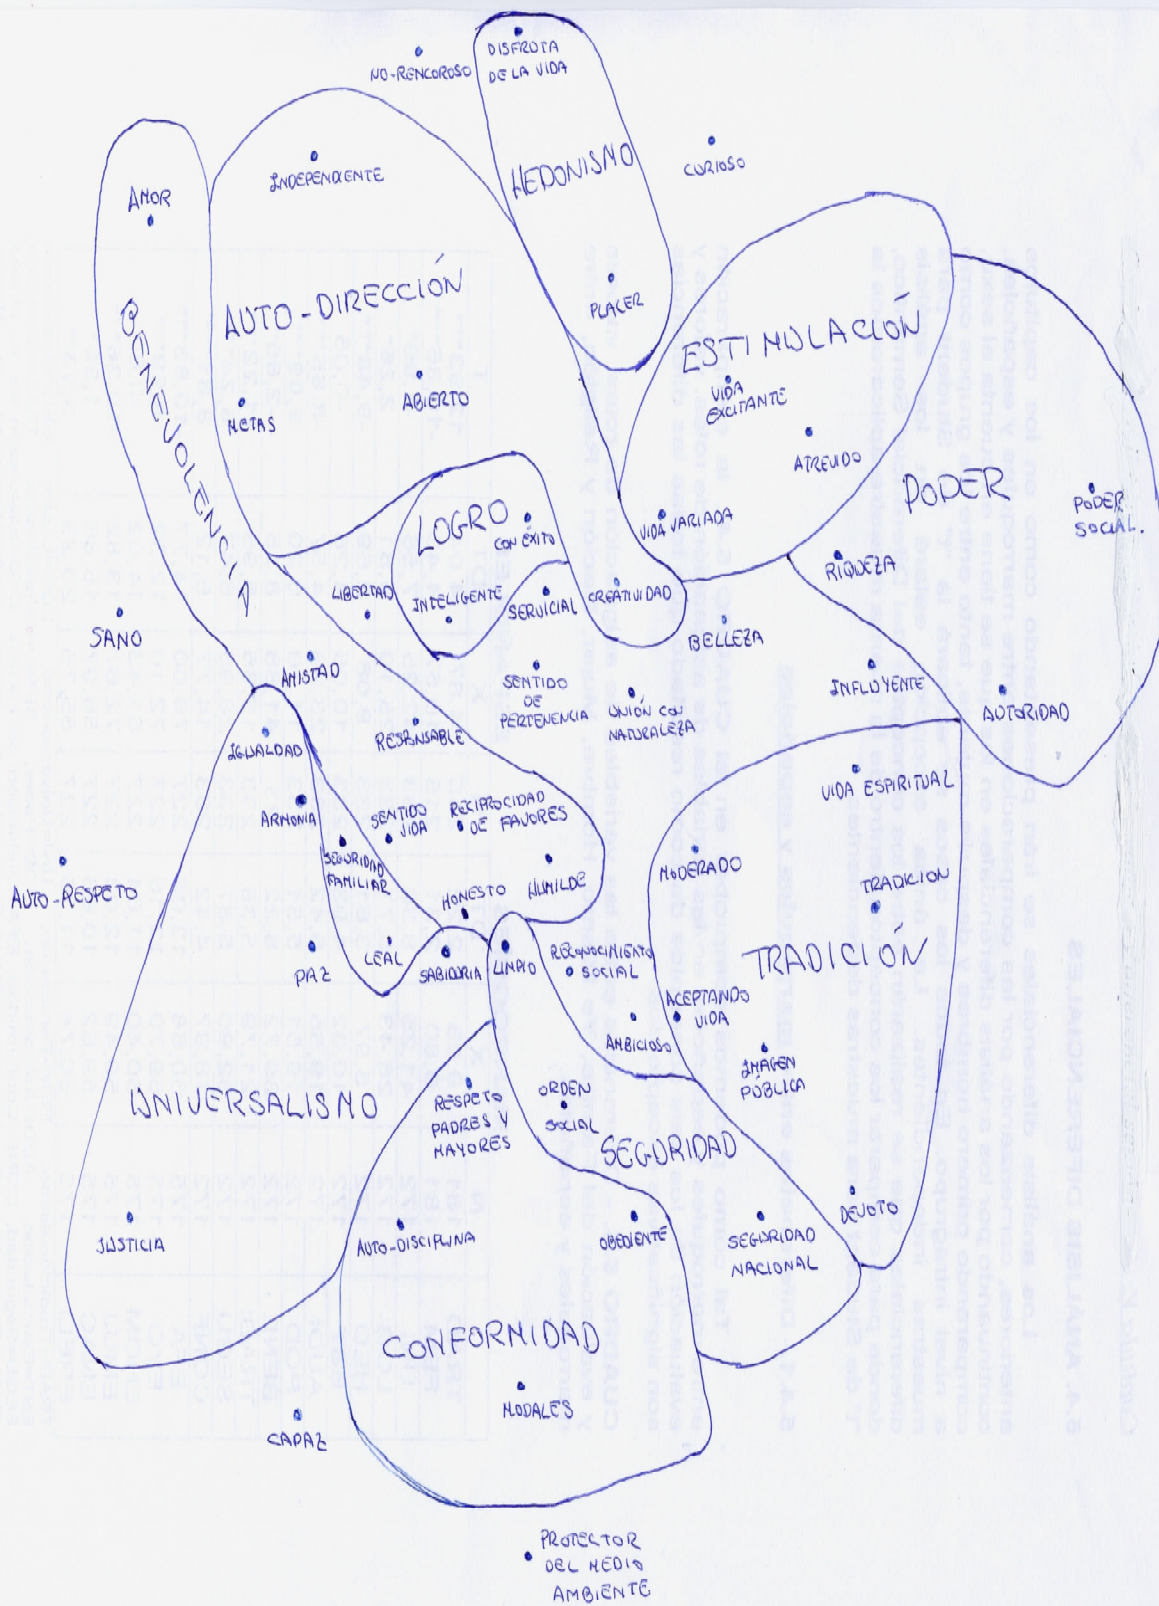 DISFRUTA
DE LA VIDA
NO-RENCOROSO
HEDONISMO
CURIOSO
INDEPENDIENTE
AMOR
PLACER
AUTO-DIRECCIÓN
BENEVOLENCIA
ESTIMULACIÓN
VIDA
EXCITANTE
ABIERTO
METAS
ATREVIDO
PODER
PODER
SOCIAL.
LOGRO
CON ÉXITO
VIDA VARIADA
RIQUEZA
LIBERTAD
INTELIGENTE
SERVICIAL
CREATIVIDAD
BELLEZA
SANO
AMISTAD
SENTIDO
DE
PERTENENCIA
UNIÓN CON
NATURALEZA
INFLUYENTE
AUTORIDAD
RESPONSABLE
IGUALDAD
VIDA ESPIRITUAL
ARMONIA
SENTIDO
VIDA
RECIPROCIDAD
DE FAVORES
SEGURIDAD
FAMILIAR
MODERADO
TRADICION
AUTO-RESPETO
HONESTO
HUMILDE
PAZ
LEAL
SABIDURIA
LIMPIO
RECONOCIMIENTO
SOCIAL
TRADICIÓN
ACEPTANDO
VIDA
AMBICIOSO
IMAGEN
PÚBLICA
UNIVERSALISMO
RESPETO
PADRES Y
MAYORES
ORDEN
SOCIAL
SEGURIDAD
JUSTICIA
AUTO-DISCIPLINA
OBEDIENTE
SEGURIDAD
NACIONAL
DEVOTO
CONFORMIDAD
MODALES
CAPAZ
PROTECTOR
DEL MEDIO
AMBIENTE